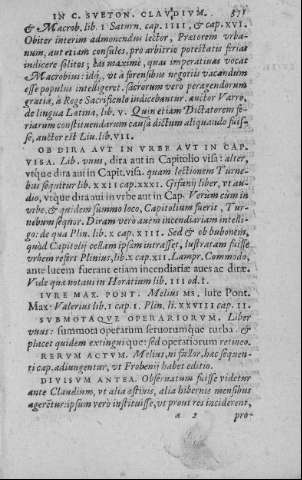 IN C. SVETON. CLAVDIVM. 571
& Macrob. lib. 1 Saturn. cap. IIII, & cap. XVI.
Obiter interim admonendus lector, Prætorem vrba-
num, aut etiam consules, pro arbitrio potestatis ferias
indicere solitos; has maximè, quas imperatiuas vocat
Macrobius: idq́, vt à forensibus negotiis vacandum
esse populus intelligeret. sacrorum vero peragendorum
gratiâ, à Rege Sacrificulo indicebantur. auctor Varro,
de lingua Latina, lib. v. Quin etiam Dictatorem fe-
riarum constituendarum causâ dictum aliquando fuis-
se, auctor est Liu. lib. VII.
OB DIRA AVT IN VRBE AVT IN CAP.
VISA. Lib. vnus, dira aut in Capitolio visa: alter,
vtque dira aut in Capit. visa. quam lectionem Turne-
bus sequitur lib. XXII cap. XXXI. Gifanij liber, vt au-
dio, vtque dira aut in vrbe aut in Cap. Verum cùm in
vrbe, & quidem summo loco, Capitolium fuerit, Tur-
nebum sequor. Diram vero auem incendiariam intelli-
go: de qua Plin. lib. X cap. XIII. Sed & ob bubonem,
quòd Capitolij cellam ipsam intrasset, lustratam fuisse
vrbem restat Plinius, lib. X cap. XII. Lampr. Commodo,
ante lucem fuerant etiam incendiariæ aues ac diræ.
Vide quæ notaui in Horatium lib. III od. I.
IVRE MAX. PONT. Melius MS. iure Pont.
Max. Valerius lib. 1 cap. I. Plin. li. XXVIII cap. II.
SVBMOTAQVE OPERARIORVM. Liber
vnus: summota operarum seruorumque turba. &
placet quidem extingui que: sed operatiorum retineo.
RERVM ACTVM. Melius, ni fallor, hæc sequen-
ti cap. adiungentur, vt Probenij habet editio.
DIVISVM ANTEA. Obseruatum fuisse videtur
ante Claudium, vt alia æstiuis, alia hibernis mensibus
agerẽtur: ipsum verò instituisse, vt prout res inciderent,
a 2 pro-